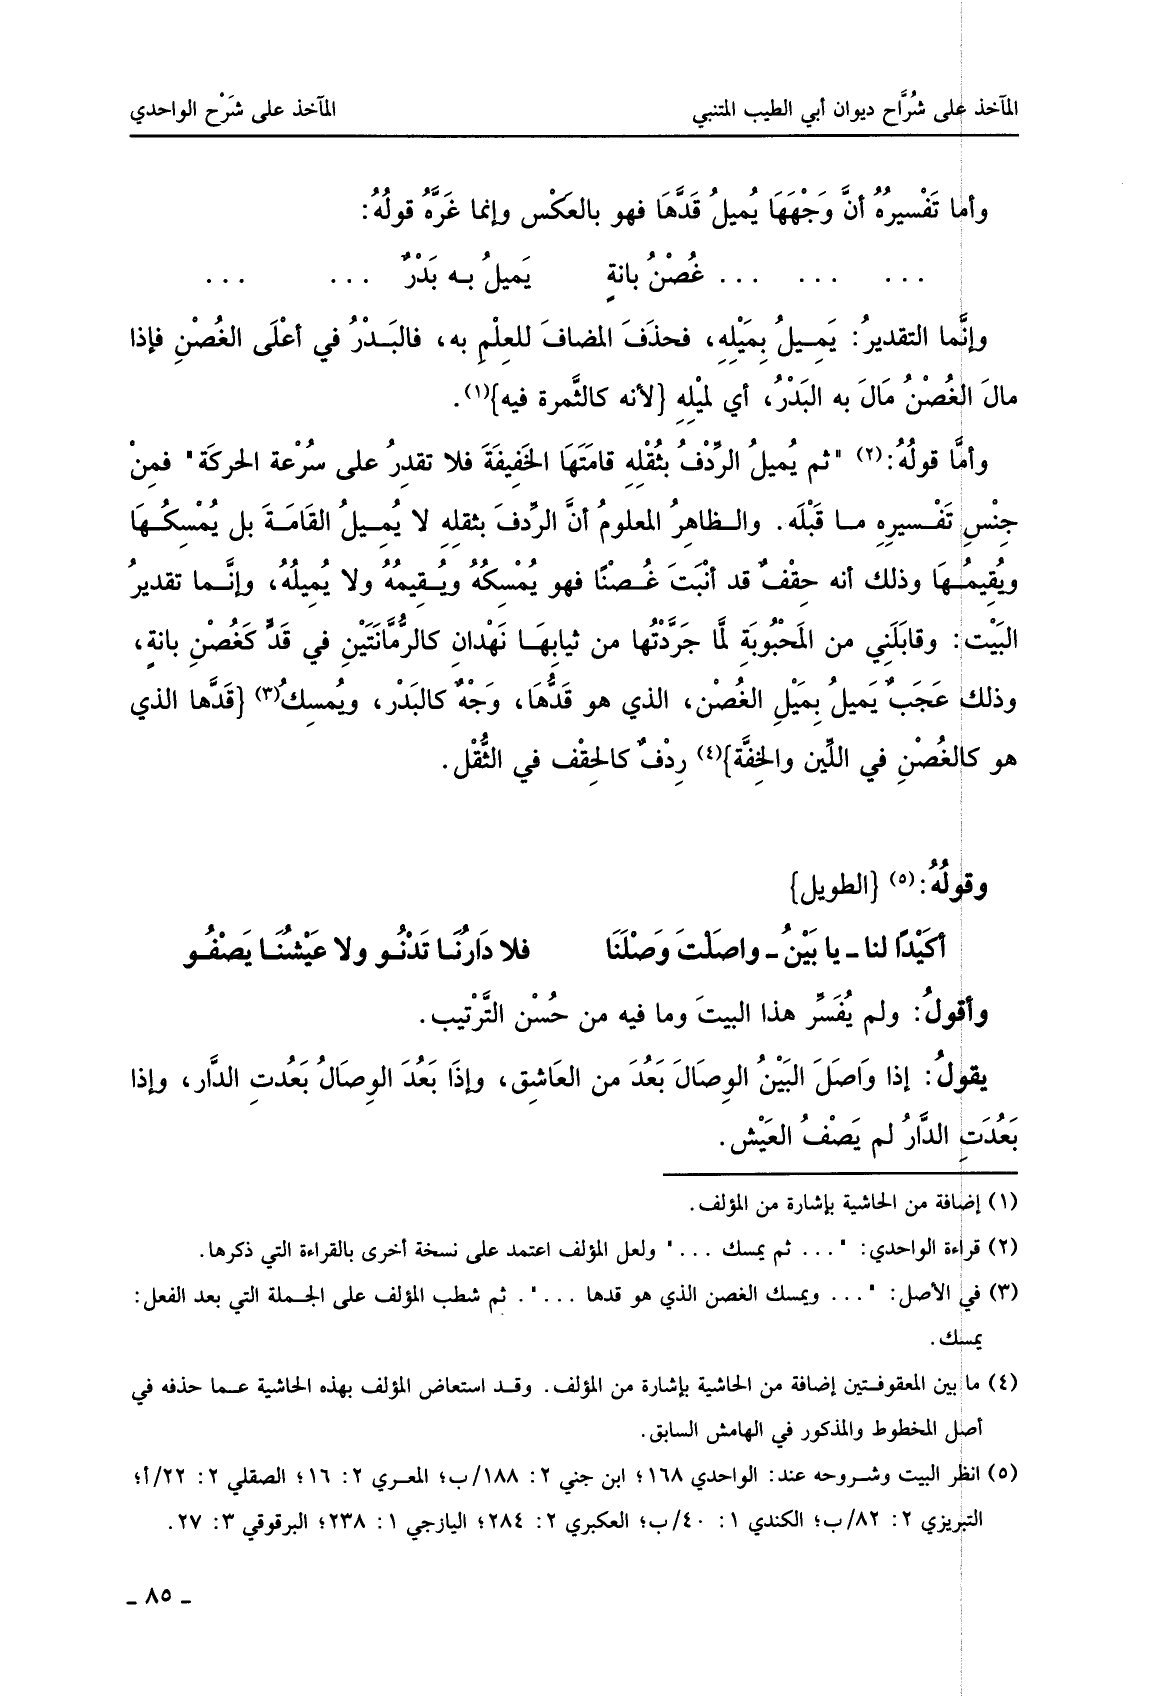 المآخذ على شُرَّاح ديوان أبي الطيب المتنبي المآخذ على شَرْح الواحدي
وأما تَفْسيرُهُ أنَّ وَجْهَهَا يُميلُ قَدَّهَا فهو بالعَكْس وإنما غَرَّهُ قولُهُ:
... ... ... غُصْنُ بانةٍ يَميلُ بـه بَدْرٌ ... ...
وإنَّما التقديرُ: يَمِـيلُ بِمَيْلِهِ، فحذَفَ المضافَ للعِلْمِ به، فالبَـدْرُ في أعْلَى الغُصْنِ فإذا
مالَ الغُصْنُ مَالَ به البَدْرُ، أي لميْلِهِ {لأنه كالثَّمرة فيه}(١).
وأمَّا قولُهُ:(٢) "ثم يُميلُ الرِّدْفُ بثُقْلِهِ قامَتَهَا الخَفِيفَةَ فلا تقدرُ على سُرْعة الحركَة" فمِنْ
جِنْسِ تَفْـسيرِهِ مـا قَبْلَه. والـظاهِرُ المعلومُ أنَّ الرِّدفَ بثقلِهِ لا يُمِـيلُ القَامَـةَ بل يُمْسكُـهَا
ويُقِيمُـهَا وذلك أنه حِقْفٌ قد أنْبَتَ غُـصنًا فهو يُمْسكُهُ ويُـقيمُهُ ولا يُميلُهُ، وإنَّـما تقديرُ
البَيْت: وقابَلَنِي من المَحْبُوبَةِ لَمَّا جَرَّدْتُها من ثيابِهَـا نَهْدانِ كالرُّمَّانَتَيْنِ في قَدٍّ كَغُصْنِ بانةٍ،
وذلك عَجَبٌ يَميلُ بِمَيْلِ الغُصْن، الذي هو قَدُّهَا، وَجْهٌ كالبَدْر، ويُمسِكُ(٣) {قَدَّها الذي
هو كالغُصْنِ في اللِّين والخِفَّة}(٤) رِدْفٌ كالحِقْف في الثُّقْل.
وقولُهُ:(٥) {الطويل}
أكَيْدًا لنا ـ يا بَيْنُ ـ واصلْتَ وَصْلَنَا فلا دَارُنَـا تَدْنُـو ولا عَيْشُنَـا يَصْفُـو
وأقولُ: ولم يُفَسِّر هذا البيتَ وما فيه من حُسْن التَّرْتيب.
يقولُ: إذا وَاصَلَ البَيْنُ الوِصَالَ بَعُدَ من العَاشِقِ، وإذَا بَعُدَ الوِصالُ بَعُدتِ الدَّار، وإذا
بَعُدَتِ الدَّارُ لم يَصْفُ العَيْشُ.
(١) إضافة من الحاشية بإشارة من المؤلف.
(٢) قراءة الواحدي: "... ثم يمسك ..." ولعل المؤلف اعتمد على نسخة أخرى بالقراءة التي ذكرها.
(٣) في الأصل: "... ويمسك الغصن الذي هو قدها ...". ثم شطب المؤلف على الجـملة التي بعد الفعل:
يمسك.
(٤) ما بين المعقوفـتين إضافة من الحاشية بإشارة من المؤلف. وقـد استعاض المؤلف بهذه الحاشية عـما حذفه في
أصل المخطوط والمذكور في الهامش السابق.
(٥) انظر البيت وشـروحه عند: الواحدي ١٦٨؛ ابن جني ٢: ١٨٨/ب؛ المعـري ٢: ١٦؛ الصقلي ٢: ٢٢/أ؛
التبريزي ٢: ٨٢/ب؛ الكندي ١: ٤٠/ب؛ العكبري ٢: ٢٨٤؛ اليازجي ١: ٢٣٨؛ البرقوقي ٣: ٢٧.
ـ ٨٥ ـ